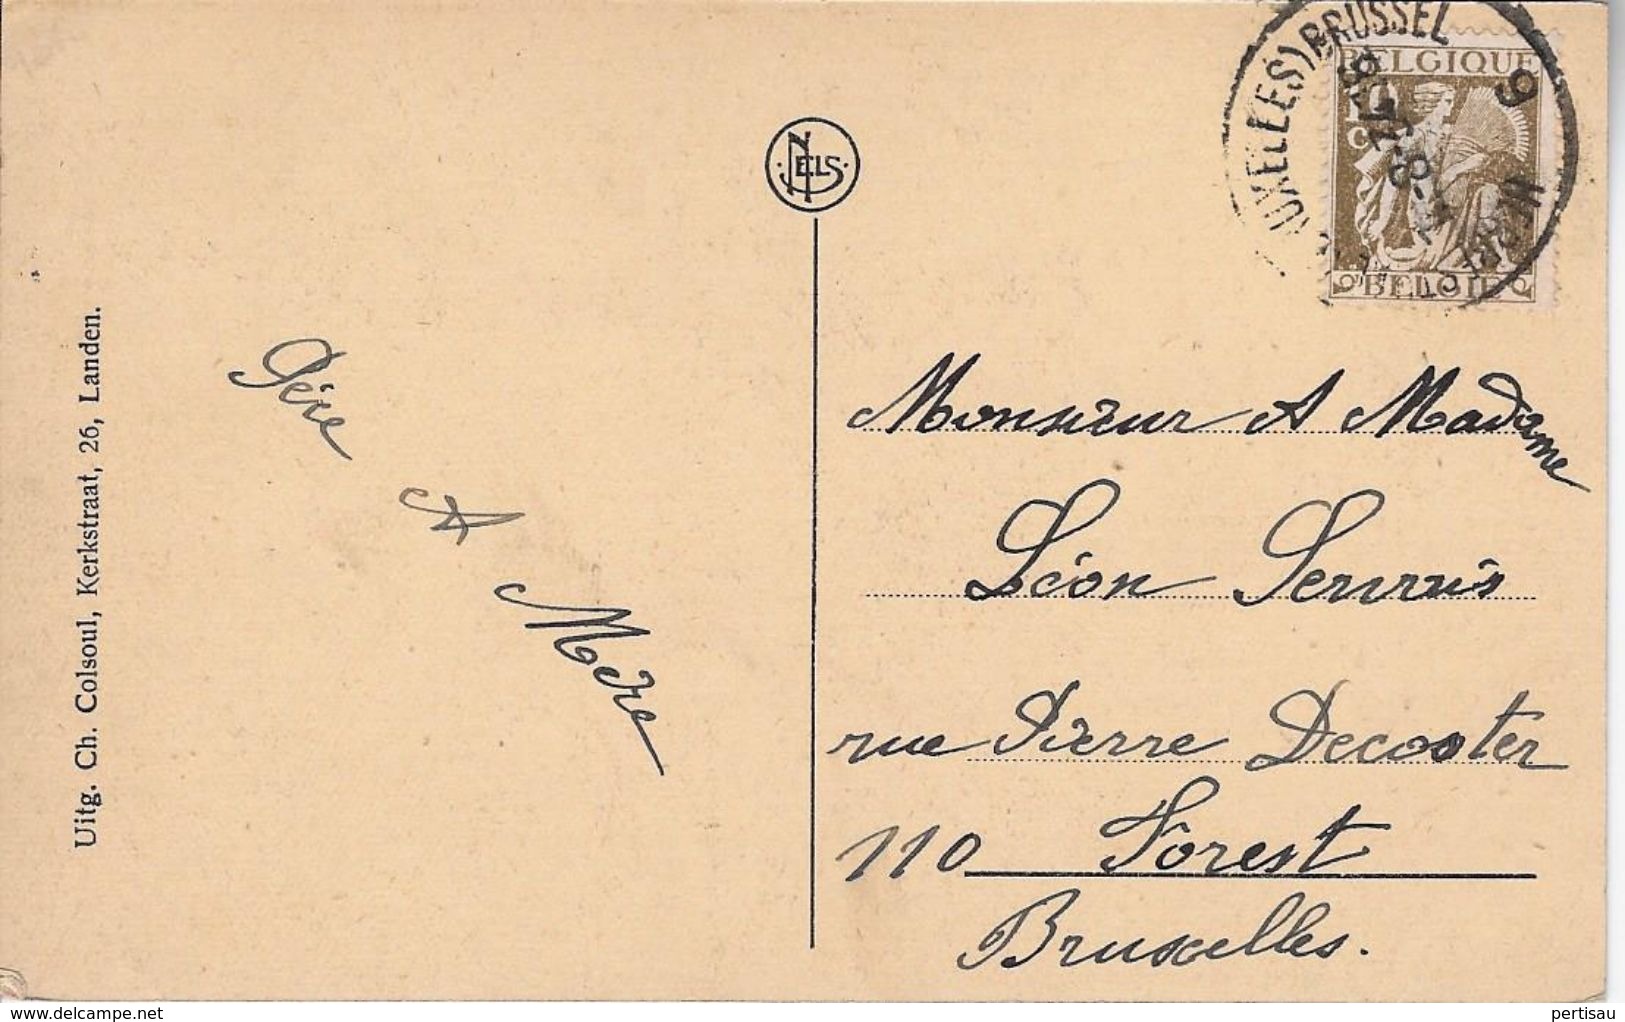 Uitg. Ch. Colsoul, Kerkstraat, 26, Landen.
Père
&
Mère
NELS
BRUSSEL
BELGIQUE
BELGIE
Monsieur & Madame
Léon Servais
rue Pierre Decoster
110 Forest
Bruxelles.
delcampe.net
pertisau